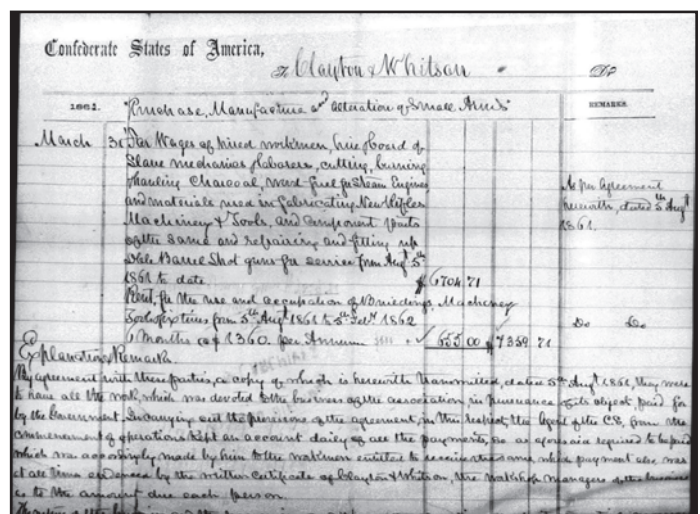 Confederate States of America,
To Clayton & Whitson Dr
1862. "Purchase, Manufacture and alteration of Small Arms" REMARKS.
March 31 For Wages of hired workmen, hire & board of
Slave mechanics & laborers, cutting, burning
& hauling Charcoal, wood-fuel for Steam Engine
and materials used in fabricating New Rifles
Machinery & Tools, and component parts
of the same and repairing and fitting up
Barrel Shot guns for service from Augt 5th
1861 to date $6704.71
As per Agreement
herewith, dated 5th Augt
1861.
Rent, for the use and occupation of Buildings, Machinery
Tools & fixtures from 5th Augt 1861 to 5th Feby 1862
6 Months as @ $1360. per Annum 655 00 $7359.71
Do Do
Explanation & Remarks.
By agreement with these parties, a copy of which is herewith transmitted, dated 5th Augt 1861, they were
to have all the work, which was devoted to the business of the association, in pursuance of its object, paid for
by the Government. In carrying out the provisions of the agreement, in this respect, the Agent of the C.S, from the
commencement of operations kept an account daily of all the payments, so as aforesaid required to be paid
which was accordingly made by him to the workmen entitled to receive the same, which payment also was
at all times evidenced by the written certificate of Clayton & Whitson, the workshop managers of the business
as to the amount due each person.